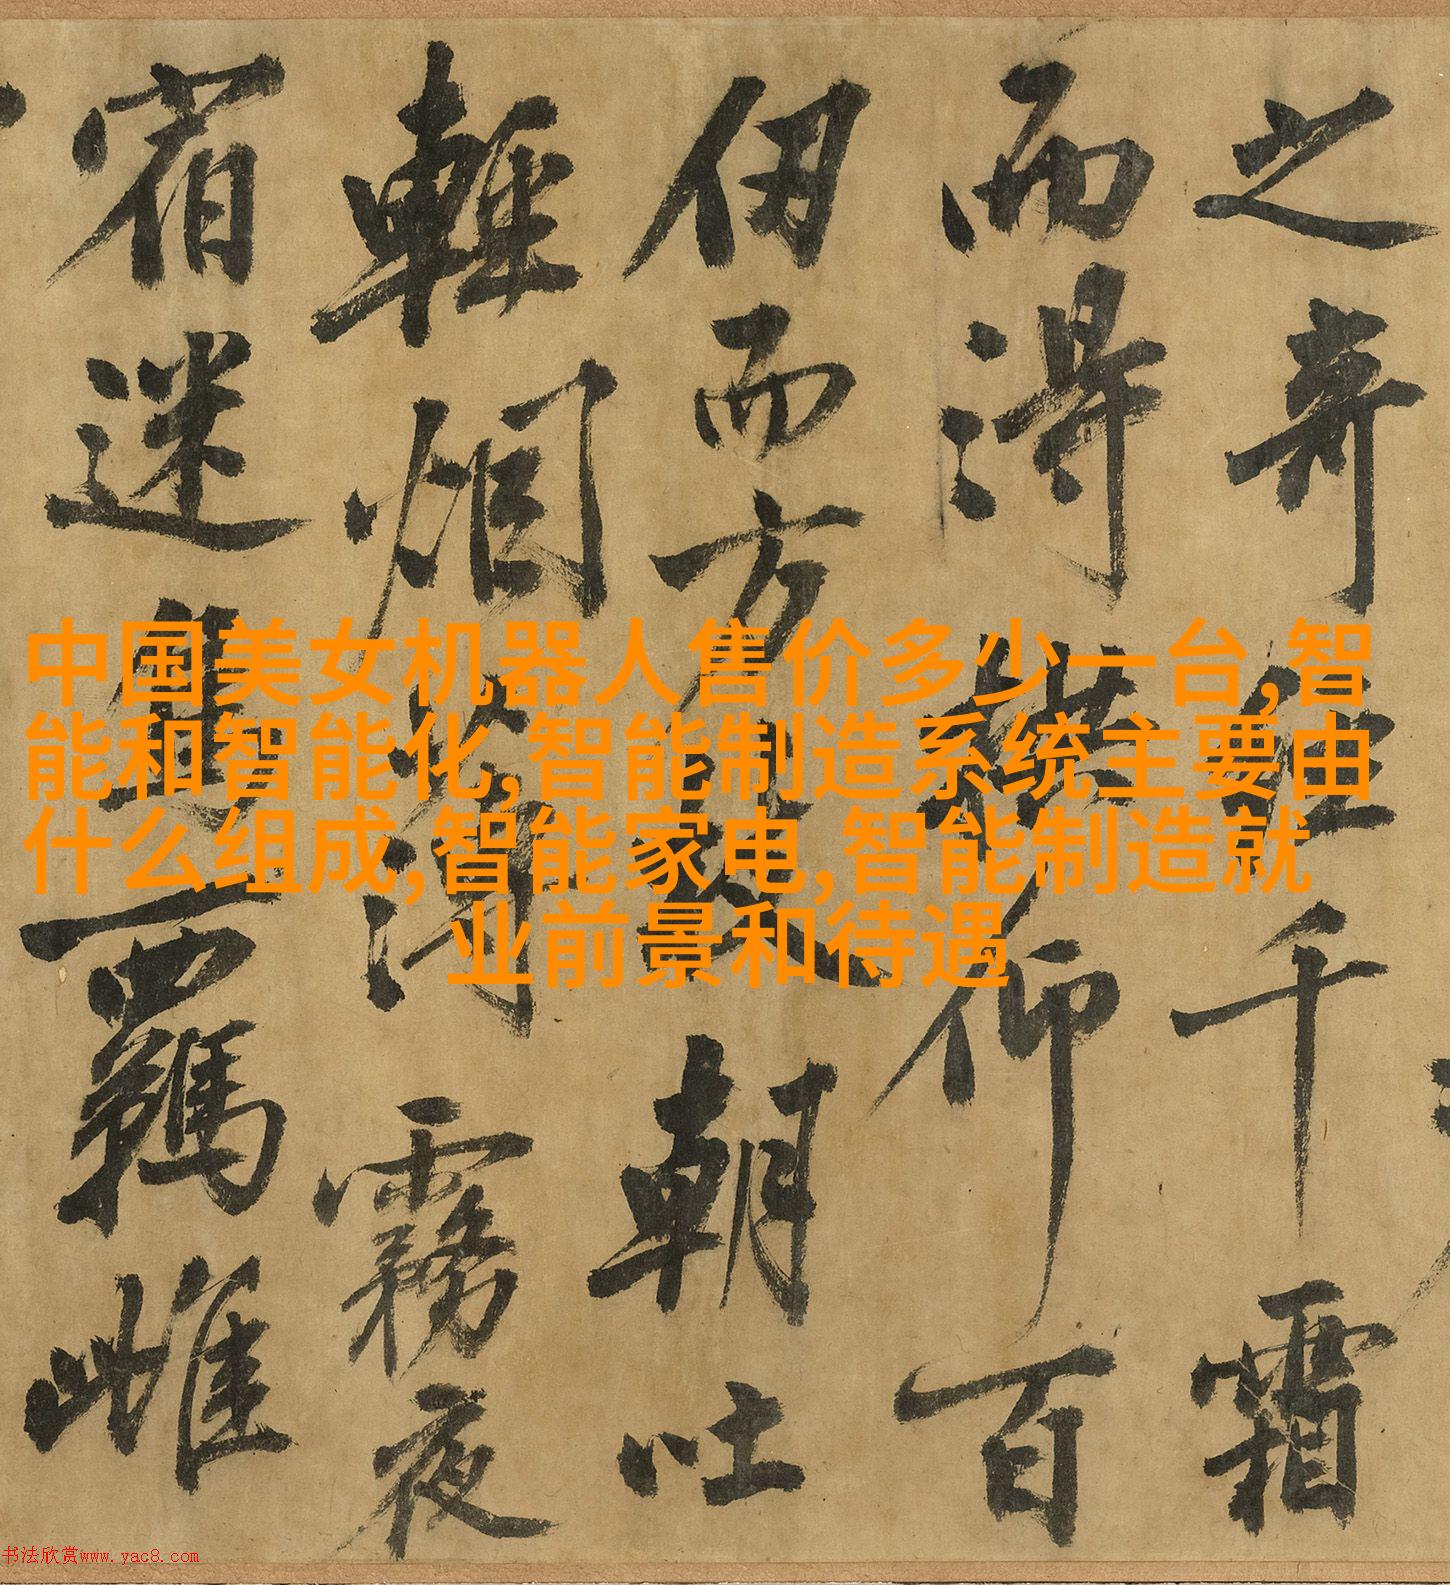 之奇千霜
而得仰百
伊而方朝吐
輕烟薄霧夜
宿迷進羈雌
中国美女机器人售价多少一台,智
能和智能化,智能制造系统主要由
什么组成,智能家电,智能制造就
业前景和待遇
书法欣赏www.yac8.com